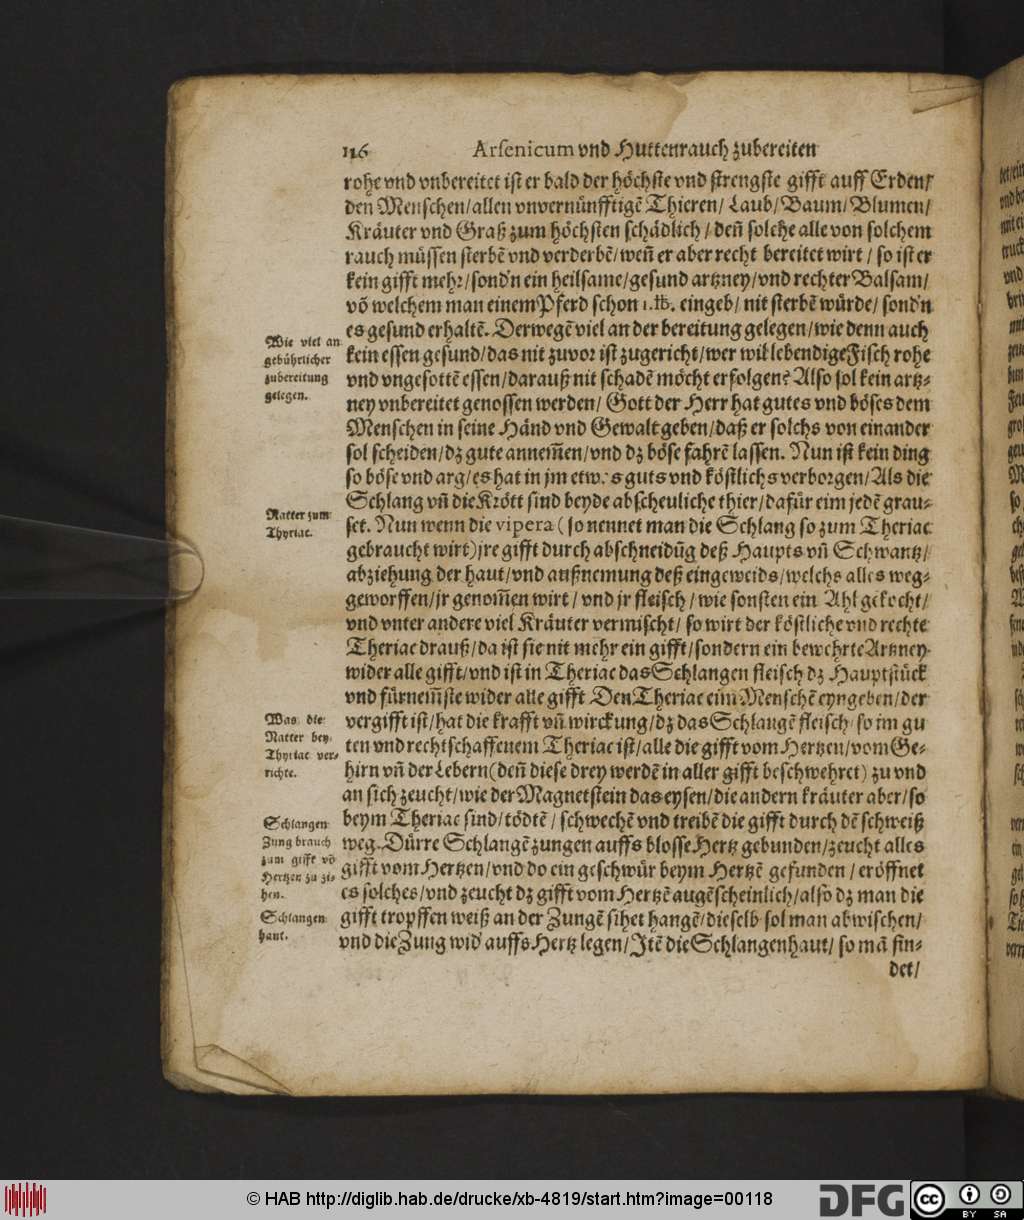 116 Arsenicum vnd Huttenrauch zubereiten
rohe vnd vnbereitet ist er bald der höchste vnd strengste gifft auff Erden/
den Menschen/allen vnvernünfftigē Thieren/ Laub/ Baum/ Blumen/
Kräuter vnd Graß zum höchsten schädlich/ deñ solche alle von solchem
rauch müssen sterbē vnd verderbē/ weñ er aber recht bereitet wirt/ so ist er
kein gifft mehr/sond'n ein heilsame/gesund artzney/vnd rechter Balsam/
võ welchem man einem Pferd schon 1. ℔. eingeb/ nit sterbē würde/ sond'n
es gesund erhaltē. Derwegē viel an der bereitung gelegen/wie denn auch
Wie viel an
gebührlicher
zubereitung
gelegen.
kein essen gesund/das nit zuvor ist zugericht/wer wil lebendige Fisch rohe
vnd vngesottē essen/darauß nit schadē möcht erfolgen? Also sol kein artz-
ney vnbereitet genossen werden/ Gott der Herr hat gutes vnd böses dem
Menschen in seine Händ vnd Gewalt geben/daß er solchs von einander
sol scheiden/dz gute annem̄en/vnd dz böse fahrē lassen. Nun ist kein ding
so böse vnd arg/es hat in jm etwas guts vnd köstlichs verborgen/Als die
Schlang vñ die Krött sind beyde abscheuliche thier/dafür eim jedē grau-
Natter zum
Thyriac.
set. Nun wenn die vipera (so nennet man die Schlang so zum Theriac
gebraucht wirt)jre gifft durch abschneidũg deß Haupts vñ Schwantz/
abziehung der haut/vnd außnemung deß eingeweids/welchs alles weg-
geworffen/jr genom̄en wirt/ vnd jr fleisch/ wie sonsten ein Ahl gekocht/
vnd vnter andere viel Kräuter vermischt/ so wirt der köstliche vnd rechte
Theriac drauß/da ist sie nit mehr ein gifft/sondern ein bewehrte Artzney
wider alle gifft/vnd ist in Theriac das Schlangen fleisch dz Hauptstück
vnd fürnem̄ste wider alle gifft Den Theriac eim Menschē eyngeben/der
Was die
Natter bey
Thyriac ver-
richte.
vergifft ist/hat die krafft vñ wirckung/dz das Schlangē fleisch so im gu
ten vnd rechtschaffenem Theriac ist/alle die gifft vom Hertzen/vom Ge-
hirn vñ der Lebern(deñ diese drey werdē in aller gifft beschwehret) zu vnd
an sich zeucht/wie der Magnetstein das eysen/die andern kräuter aber/so
beym Theriac sind/tödtē/ schwechē vnd treibē die gifft durch dē schweiß
Schlangen
Zung brauch
zum gifft võ
Hertzen zu zi-
hen.
weg. Dürre Schlangē zungen auffs blosse Hertz gebunden/zeucht alles
gifft vom Hertzen/vnd do ein geschwür beym Hertzē gefunden/ eröffnet
es solches/vnd zeucht dz gifft vom Hertzē augēscheinlich/also dz man die
Schlangen
haut.
gifft tropffen weiß an der Zungē sihet hangē/dieselb sol man abwischen/
vnd die Zung wid' auffs Hertz legen/Jtē die Schlangenhaut/ so mã fin-
det/
© HAB http://diglib.hab.de/drucke/xb-4819/start.htm?image=00118
DFG
cc BY SA